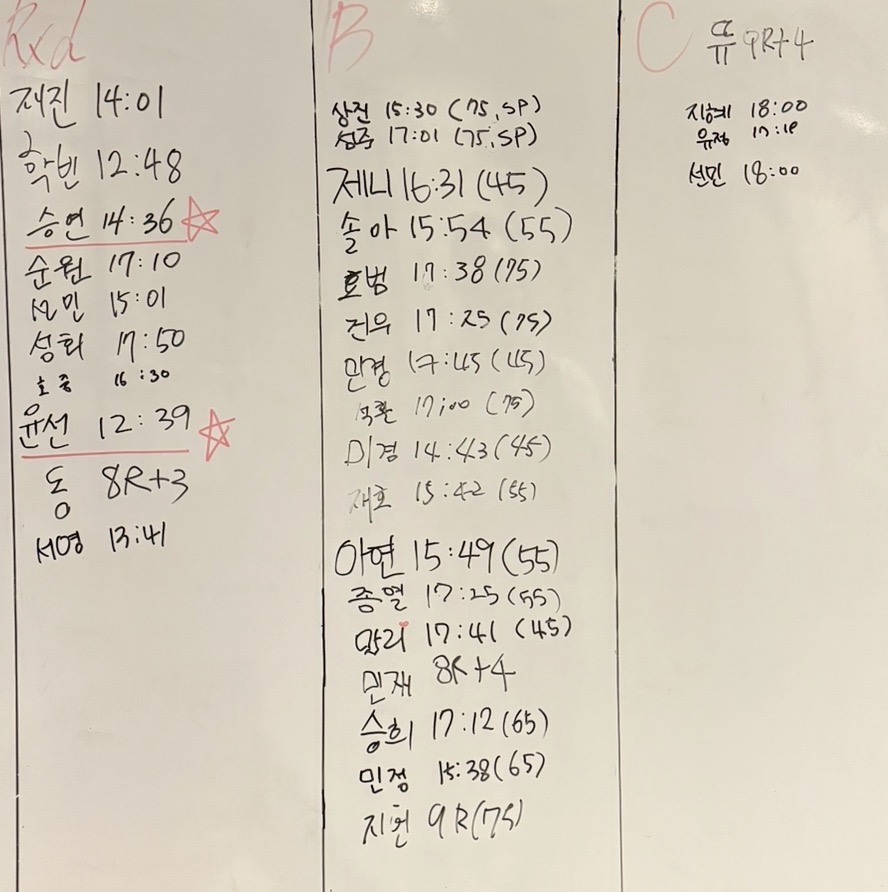 Rxd
재진 14:01
학빈 12:48
승연 14:36
순원 17:10
선민 15:01
성희 17:50
호중 16:30
윤선 12:39
동 8R+3
서영 13:41
B
상진 15:30 (75, SP)
성주 17:01 (75, SP)
제니 16:31 (45)
솔아 15:54 (55)
호범 17:38 (75)
건우 17:25 (75)
만경 17:45 (45)
17:00 (75)
미경 14:43 (45)
재호 15:42 (55)
아연 15:49 (55)
종열 17:25 (55)
17:41 (45)
민재 8R+4
승희 17:12 (65)
민정 15:38 (65)
지현 9R (75)
C
유 9R+4
지혜 18:00
유정
선민 18:00